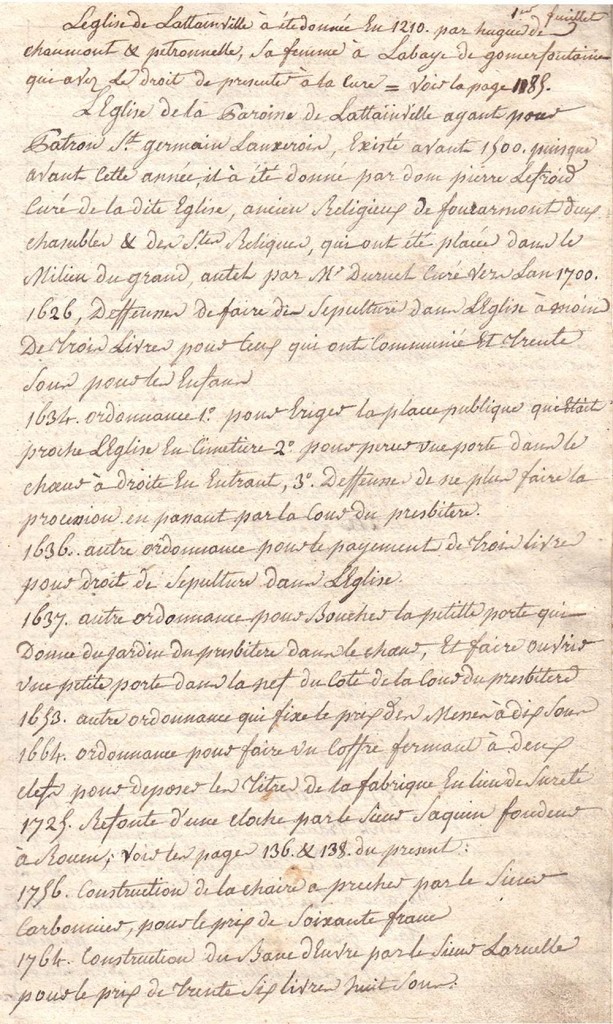 1er Juillet
L'Eglise de Lattainville à été donnée En 1210. par hugue de
chaumont & pétronnelle, Sa femme à Labaye de gomerfontaine
que avez Le droit de presenté à la Cure = Voir la page 1185.
L'Eglise de la Paroisse de Lattainville ayant pour
Patron St. germain Lauxerois, Existé avant 1500. puisque
avant Cette année, il à été donné par dom pierre Lefroid
Curé de la dite Eglise, ancien Religieux de foucarmont deux
chasubles & des Stes Reliques, qui ont été placée dans le
Milieu du grand, autel par Mr Duruel Curé Vers Lan 1700.
1626, Deffenses de faire des Sepulture dans L'Eglise à moins
De trois Livres pour Ceux qui ont Communié Et Trente
Sous pour les Enfans
1634. ordonnance 1º. pour Eriger la place publique qui Etait
proche L'Eglise En Cimetiere 2º. pour percer une porte dans le
chœur à droite En Entrant, 3º. Deffenses de ne plus faire la
procession en passant par la Cour du presbitere.
1636. autre ordonnance pour le payement de trois livres
pour droit de Sepulture dans L'Eglise.
1637. autre ordonnance pour Boucher la petitte porte qui
Donne du jardin du presbitere dans le chœur, Et faire ouvrir
une petite porte dans la nef du Coté de la Cour du presbitere
1653. autre ordonnance qui fixe le prix des Messes à dix Sous
1664. ordonnance pour faire un Coffre fermant à deux
clefs pour deposer les Titres de la fabrique En lieu de Sureté
1725. Refonte d'une cloche par le Sieur Jaquin fondeur
à Rouen; Voir les page 136. & 138. du present:
1756. Construction de la chaire a precher par le Sieur
Carbonnier, pour le prix de Soixante francs
1764. Construction du Banc d'Euvre par le Sieur Laruelle
pour le prix de trente Six livres huit Sous: